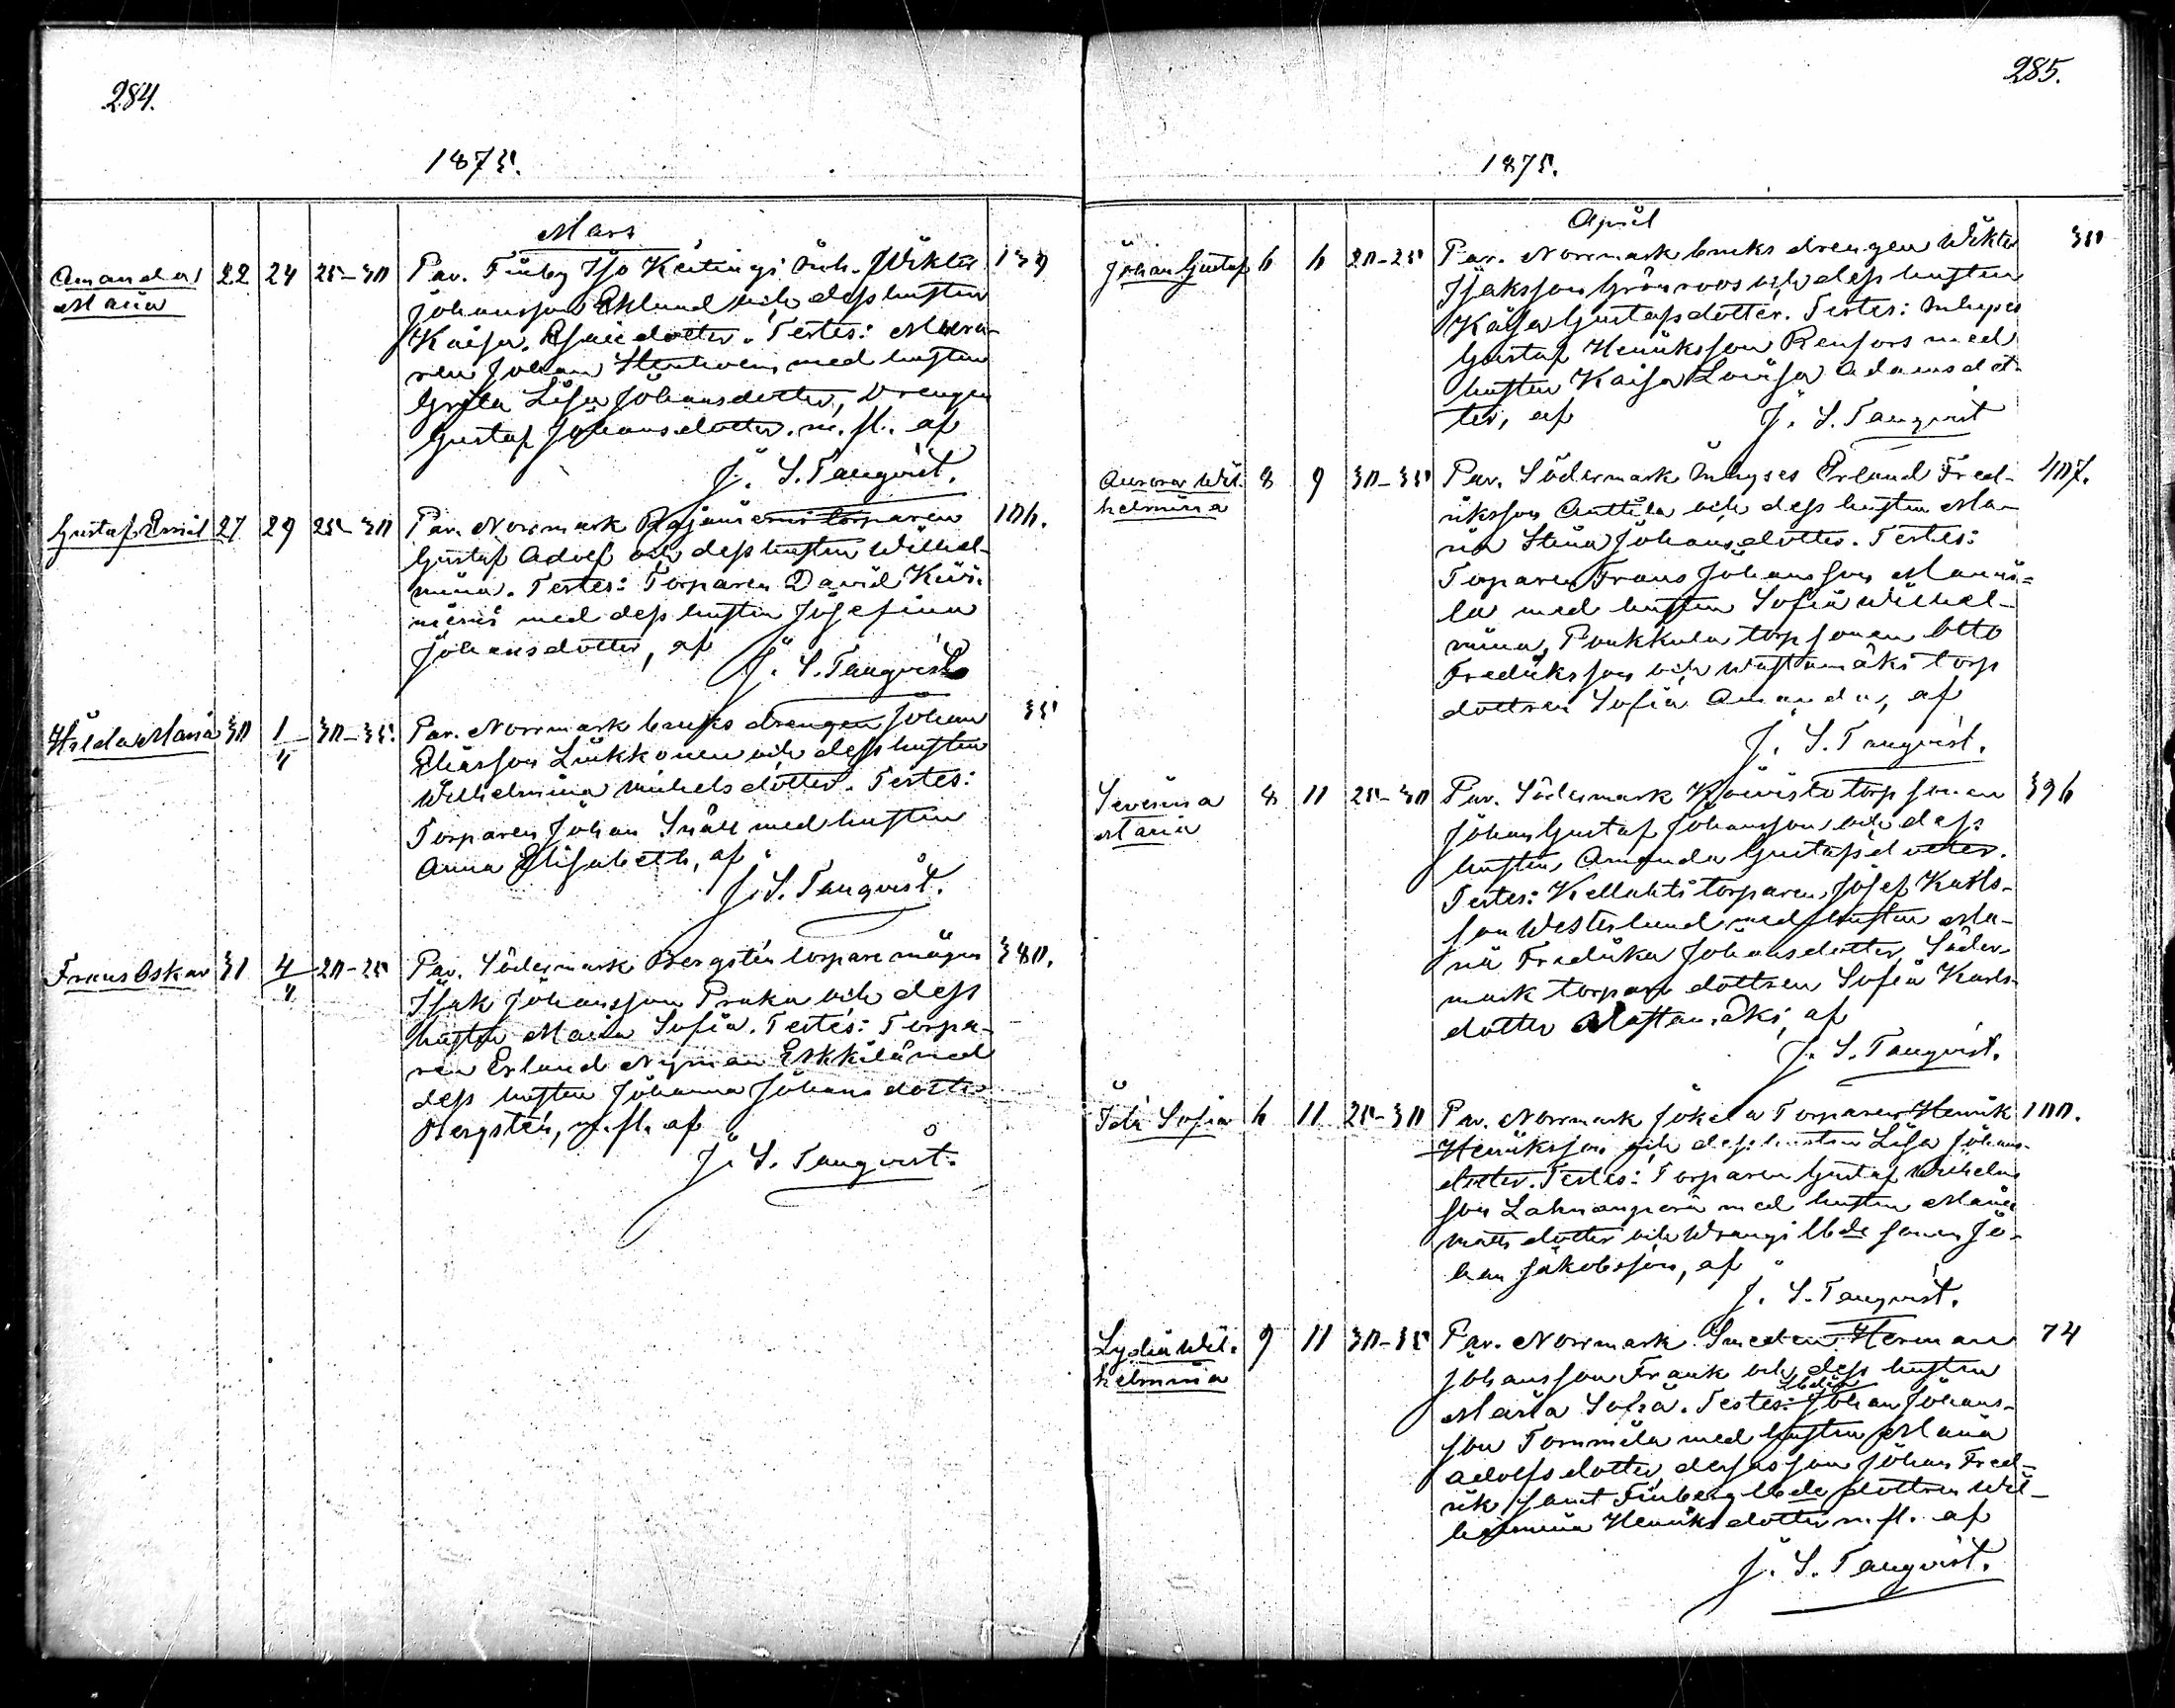 284.
1875.
Mars
Amanda
Maria
22 24 25-30
Par. Finby Iso Keitingi inh. Wiktor 139
Johansson Eklund och dess hustru
Kaisa Esaiedotter. Testes: Mura-
ren Johan Stenroos med hustru
Greta Lisa Johansdotter, Drengen
Gustaf Johansdotter m. fl. af
J. S. Tanqvist.
Gustaf Emil 27 29 25-30
Par. Norrmark torparen 106.
Gustaf Adolf och dess hustru Wilhel-
mina. Testes: Torparen David Kivi-
niemi med dess hustru Josefina
Johansdotter, af
J. S. Tanqvist
Hilda Maria 30 1/4 30-35.
Par. Norrmark bruks drengen Johan 35
Eliasson Liukkonen och dess hustru
Wilhelmina Mickelsdotter. Testes:
Torparen Johan Snäll med hustru
Anna Elisabeth, af
J. S. Tanqvist.
Frans Oskar 31 4/4 20-25
Par. Södermark Bergsten torpare mågen 380.
Isak Johansson Praka och dess
hustru Maria Sofia. Testes: Torpa-
ren Erland Nyman Eskkilä med
dess hustru Johanna Johansdotter
Bergsten, m. fl. af
J. S. Tanqvist.
285.
1875.
April
Johan Gustaf 6 6 20-25
Par. Norrmark bruks drengen Wiktor 35
Isaksson Grönroos och dess hustru
Kaisa Gustafsdotter. Testes: Inhyses
Gustaf Henriksson Renfors med
hustru Kaisa Lovisa Adamsdot-
ter, af J. S. Tanqvist
Aurora Wil-
helmina
8 9 30-35
Par. Södermark Inhyses Erland Fred- 407.
riksson Anttila och dess hustru Ma-
ria Stina Johansdotter. Testes:
Torparen Frans Johansson Manni-
la med hustru Sofia Wilhel-
mina, Poukkula torpsonen Otto
Fredriksson och Wastamäki torp
dottren Sofia Amanda, af
J. S. Tanqvist.
Severina
Maria
8 11 25-30
Par. Södermark Koivisto torpsonen 396
Johan Gustaf Johansson och dess
hustru Amanda Gustafsdotter.
Testes: Kellahti torparen Josef Karls-
son Westerlund med hustru Ma-
ria Fredrika Johansdotter, Söder-
mark torpare dottren Sofia Karls-
dotter Wastamäki, af
J. S. Tanqvist.
Ida Sofia 6 11 25-30
Par. Norrmark Jokela Torparen Henrik 100.
Henriksson och dess hustru Lisa Johans-
dotter. Testes: Torparen Gustaf Wilhelms
son Lahnanperä med hustru Maria
Matts dotter och sonen Jo-
han Jakobsson, af
J. S. Tanqvist.
Lydia Wil-
helmina
9 11 30-35
Par. Norrmark Smeden Herman 74
Johansson Frank och dess hustru
Maria Sofia. Testes: Johan Johans-
son Tommila med hustru Maria
Adolfsdotter, deras son Johan Fred-
rik samt Finberg dottren Wil-
helmina Henriksdotter m. fl. af
J. S. Tanqvist.